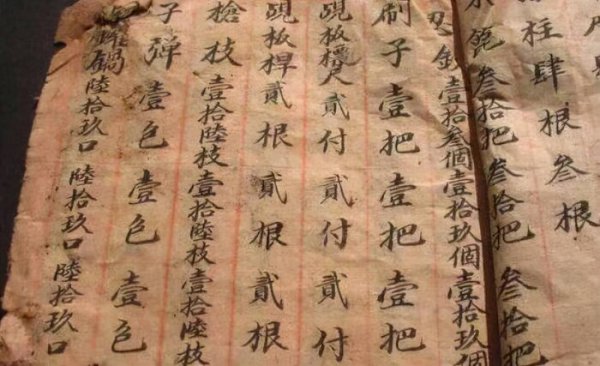 柱肆根 叁根
瓶叁拾把 叁拾把 叁拾把
忍 壹拾叁個 壹拾玖個 壹拾玖個
刷子壹把 壹把 壹把
覞板 尺貳付 貳付 貳付
覞板桿貳根 貳根 貳根
槍枝壹拾陸枝 壹拾陸枝 壹拾陸枝
子彈壹包 壹包 壹包
鍋陸拾玖口 陸拾玖口 陸拾玖口